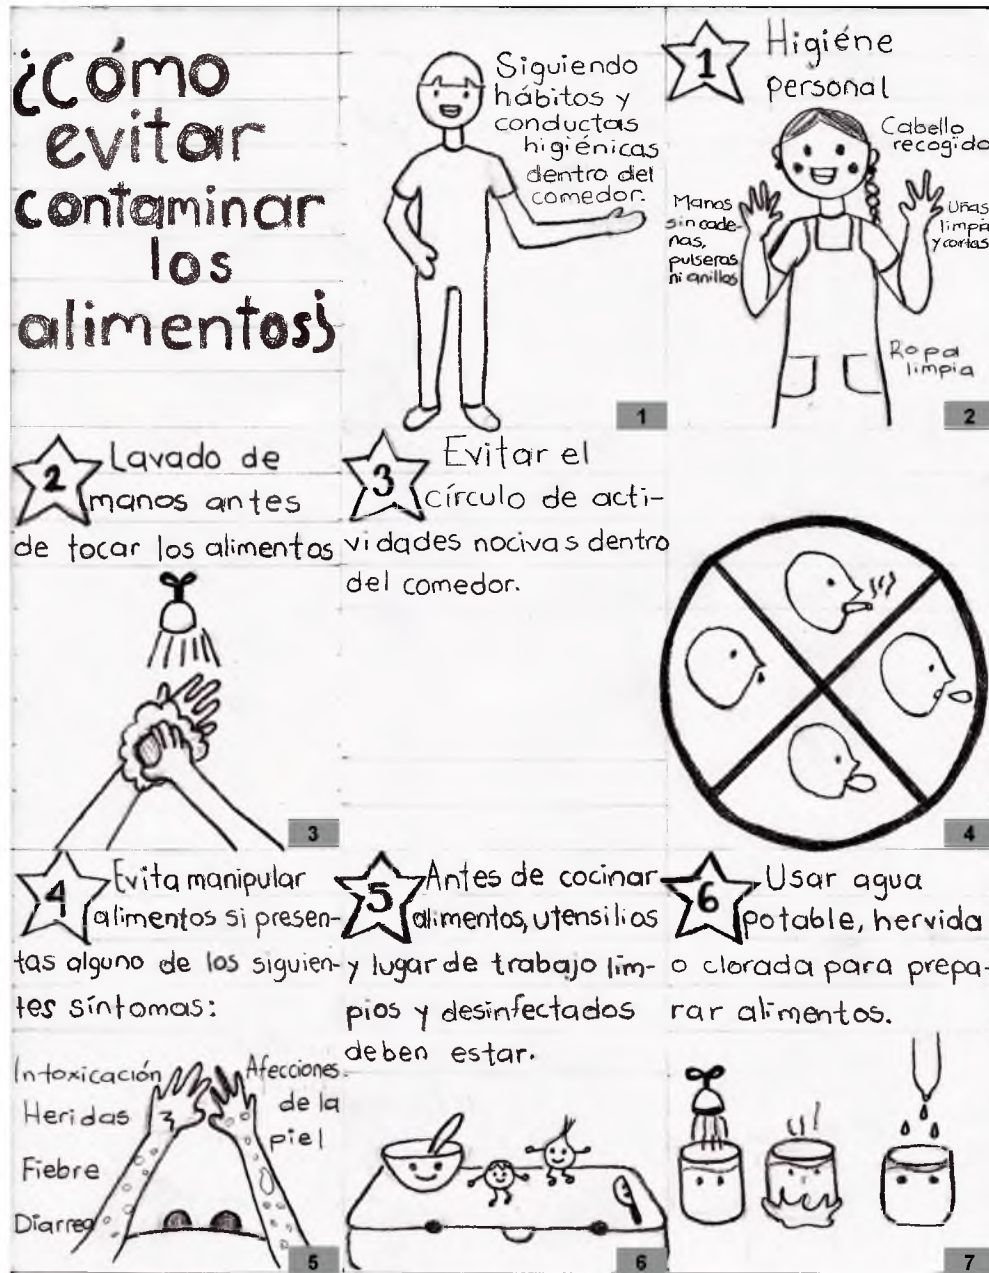 ¿Cómo
evitar
contaminar
los
alimentos?
Siguiendo
hábitos y
conductas
higiénicas
dentro del
comedor.
1
1 Higiéne
personal
Cabello
recogido
Manos
sin cade-
nas,
pulseras
ni anillos
Uñas
limpia
y cortas
Ropa
limpia
2
2 Lavado de
manos antes
de tocar los alimentos
3
3 Evitar el
círculo de acti-
vidades nocivas dentro
del comedor.
4
4 Evita manipular
alimentos si presen-
tas alguno de los siguien-
tes síntomas:
Intoxicación
Heridas
Fiebre
Diarrea
Afecciones
de la
piel
5
5 Antes de cocinar
alimentos, utensilios
y lugar de trabajo lim-
pios y desinfectados
deben estar.
6
6 Usar agua
potable, hervida
o clorada para prepa-
rar alimentos.
7